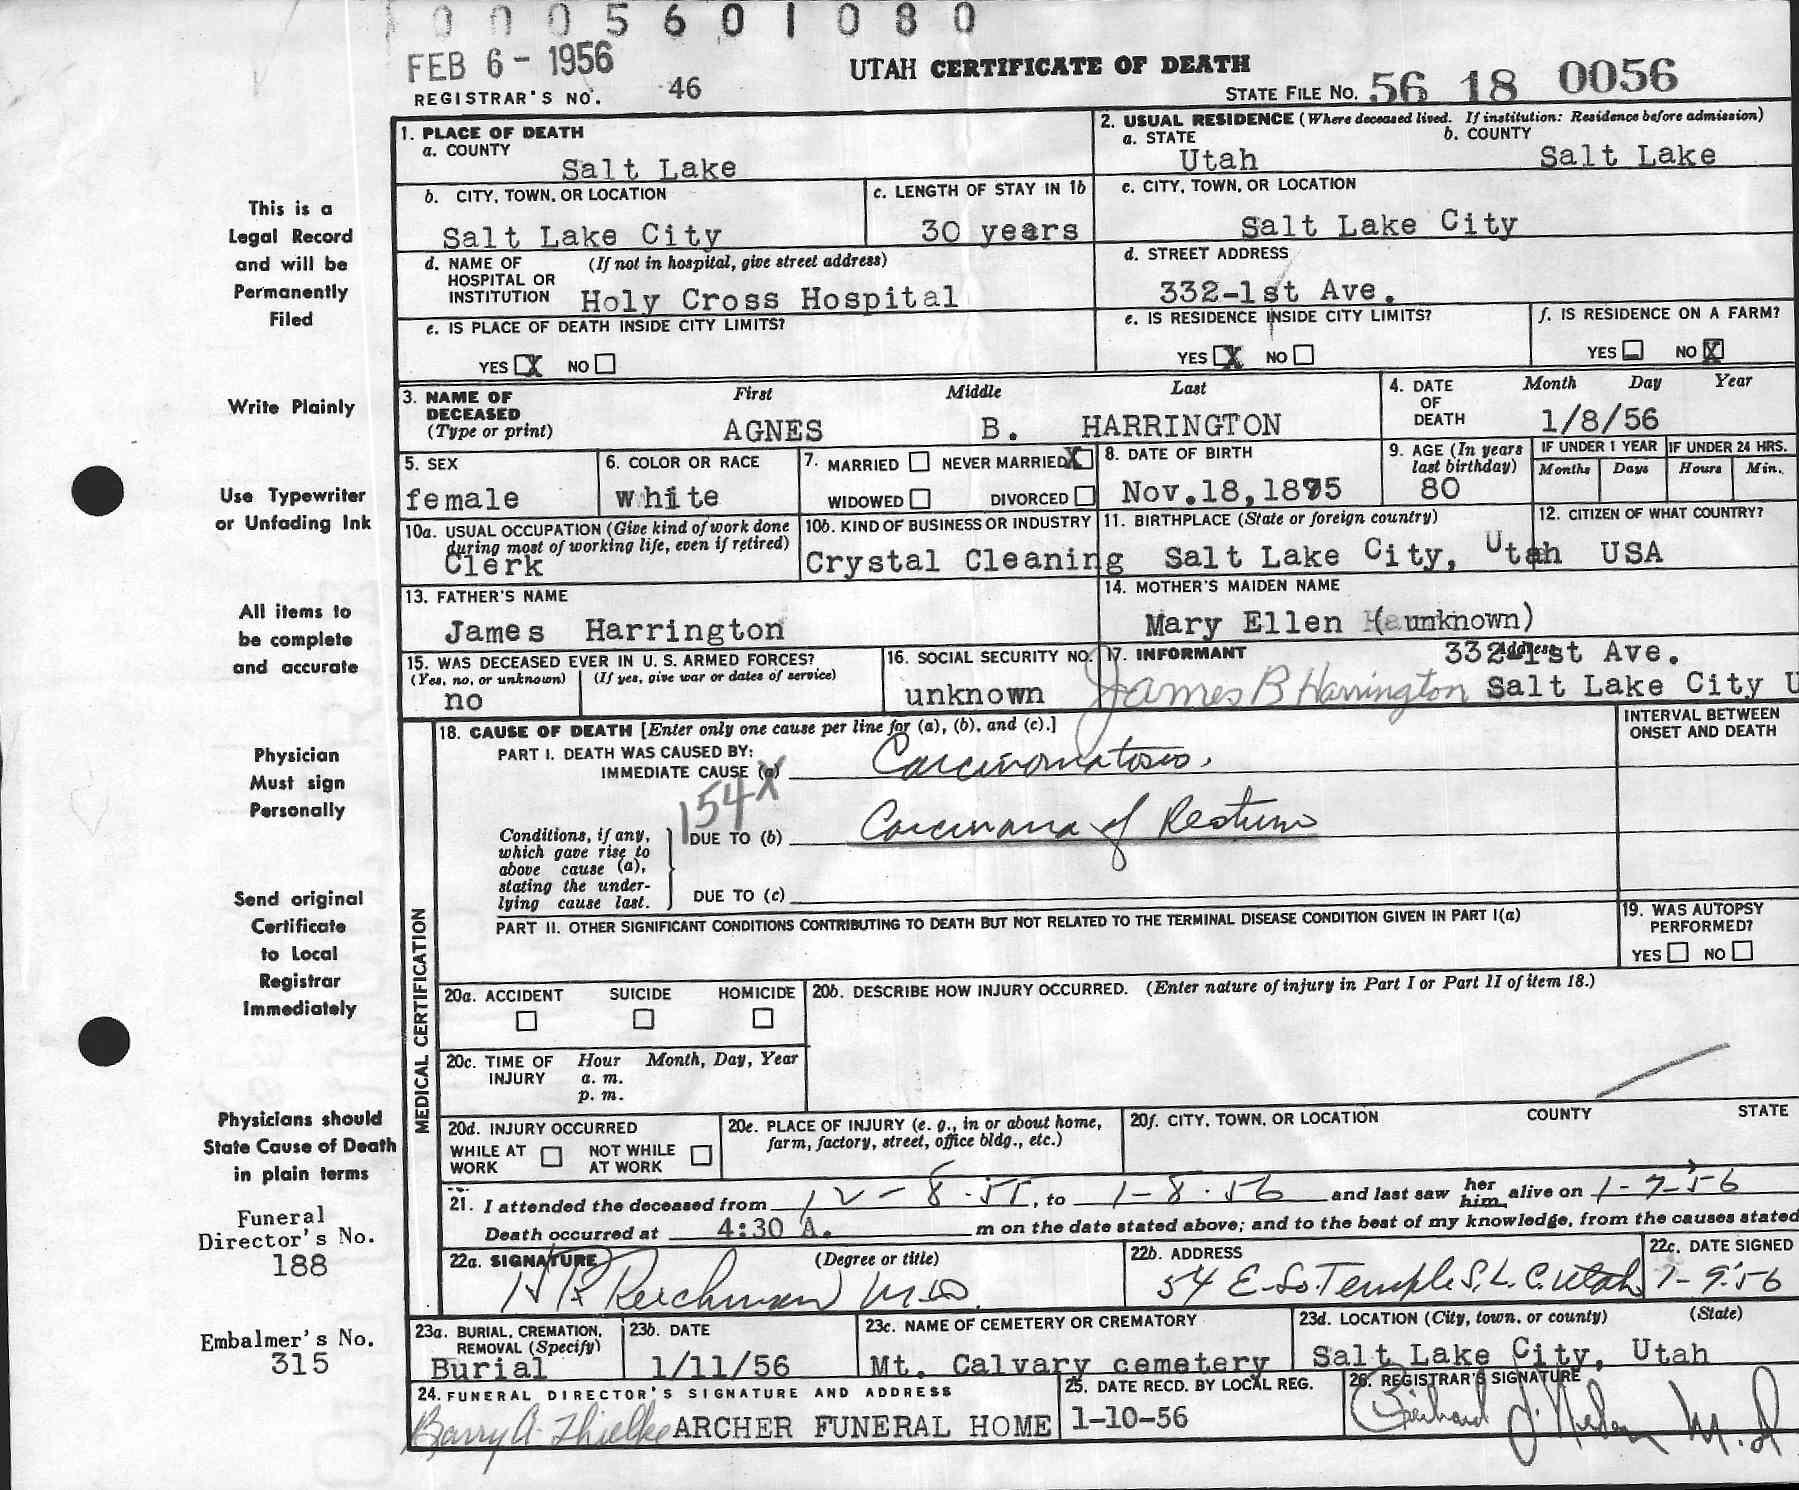 0005601080
FEB 6 - 1956
REGISTRAR'S NO. 46
UTAH CERTIFICATE OF DEATH
STATE FILE NO. 56 18 0056
This is a
Legal Record
and will be
Permanently
Filed
Write Plainly
Use Typewriter
or Unfading Ink
All items to
be complete
and accurate
Physician
Must sign
Personally
Send original
Certificate
to Local
Registrar
Immediately
Physicians should
State Cause of Death
in plain terms
Funeral
Director's No.
188
Embalmer's No.
315
1. PLACE OF DEATH
a. COUNTY
Salt Lake
2. USUAL RESIDENCE (Where deceased lived. If institution: Residence before admission)
a. STATE
Utah
b. COUNTY
Salt Lake
b. CITY, TOWN, OR LOCATION
Salt Lake City
c. LENGTH OF STAY IN 1b
30 years
c. CITY, TOWN, OR LOCATION
Salt Lake City
d. NAME OF (If not in hospital, give street address)
HOSPITAL OR
INSTITUTION Holy Cross Hospital
d. STREET ADDRESS
332-1st Ave.
e. IS PLACE OF DEATH INSIDE CITY LIMITS?
YES X NO
e. IS RESIDENCE INSIDE CITY LIMITS?
YES X NO
f. IS RESIDENCE ON A FARM?
YES NO X
3. NAME OF
DECEASED
(Type or print)
First Middle Last
AGNES B. HARRINGTON
4. DATE
OF
DEATH
Month Day Year
1/8/56
5. SEX
female
6. COLOR OR RACE
white
7. MARRIED NEVER MARRIED X
WIDOWED DIVORCED
8. DATE OF BIRTH
Nov.18,1875
9. AGE (In years
last birthday)
80
IF UNDER 1 YEAR
Months Days
IF UNDER 24 HRS.
Hours Min.
10a. USUAL OCCUPATION (Give kind of work done
during most of working life, even if retired)
Clerk
10b. KIND OF BUSINESS OR INDUSTRY
Crystal Cleaning
11. BIRTHPLACE (State or foreign country)
Salt Lake City, Utah
12. CITIZEN OF WHAT COUNTRY?
USA
13. FATHER'S NAME
James Harrington
14. MOTHER'S MAIDEN NAME
Mary Ellen (unknown)
15. WAS DECEASED EVER IN U. S. ARMED FORCES?
(Yes, no, or unknown) (If yes, give war or dates of service)
no
16. SOCIAL SECURITY NO.
unknown
17. INFORMANT Address
332-1st Ave.
James B Harrington Salt Lake City U
18. CAUSE OF DEATH [Enter only one cause per line for (a), (b), and (c).]
INTERVAL BETWEEN
ONSET AND DEATH
PART I. DEATH WAS CAUSED BY:
IMMEDIATE CAUSE (a) Carcinomatosis.
154X
Conditions, if any,
which gave rise to
above cause (a),
stating the under-
lying cause last.
DUE TO (b) Carcinoma of Rectum
DUE TO (c)
PART II. OTHER SIGNIFICANT CONDITIONS CONTRIBUTING TO DEATH BUT NOT RELATED TO THE TERMINAL DISEASE CONDITION GIVEN IN PART I(a)
19. WAS AUTOPSY
PERFORMED?
YES NO
MEDICAL CERTIFICATION
20a. ACCIDENT SUICIDE HOMICIDE
20b. DESCRIBE HOW INJURY OCCURRED. (Enter nature of injury in Part I or Part II of item 18.)
20c. TIME OF Hour Month, Day, Year
INJURY a. m.
p. m.
20d. INJURY OCCURRED
WHILE AT NOT WHILE
WORK AT WORK
20e. PLACE OF INJURY (e. g., in or about home,
farm, factory, street, office bldg., etc.)
20f. CITY, TOWN, OR LOCATION COUNTY STATE
21. I attended the deceased from 12-8-55, to 1-8-56 and last saw her him alive on 1-7-56
Death occurred at 4:30 A. m on the date stated above; and to the best of my knowledge, from the causes stated
22a. SIGNATURE (Degree or title)
M.D.
22b. ADDRESS
54 E. So. Temple S. L. C. Utah
22c. DATE SIGNED
1-9-56
23a. BURIAL, CREMATION,
REMOVAL (Specify)
Burial
23b. DATE
1/11/56
23c. NAME OF CEMETERY OR CREMATORY
Mt. Calvary cemetery
23d. LOCATION (City, town, or county) (State)
Salt Lake City, Utah
24. FUNERAL DIRECTOR'S SIGNATURE AND ADDRESS
Barry A. Thielke ARCHER FUNERAL HOME
25. DATE RECD. BY LOCAL REG.
1-10-56
26. REGISTRAR'S SIGNATURE
M.D.